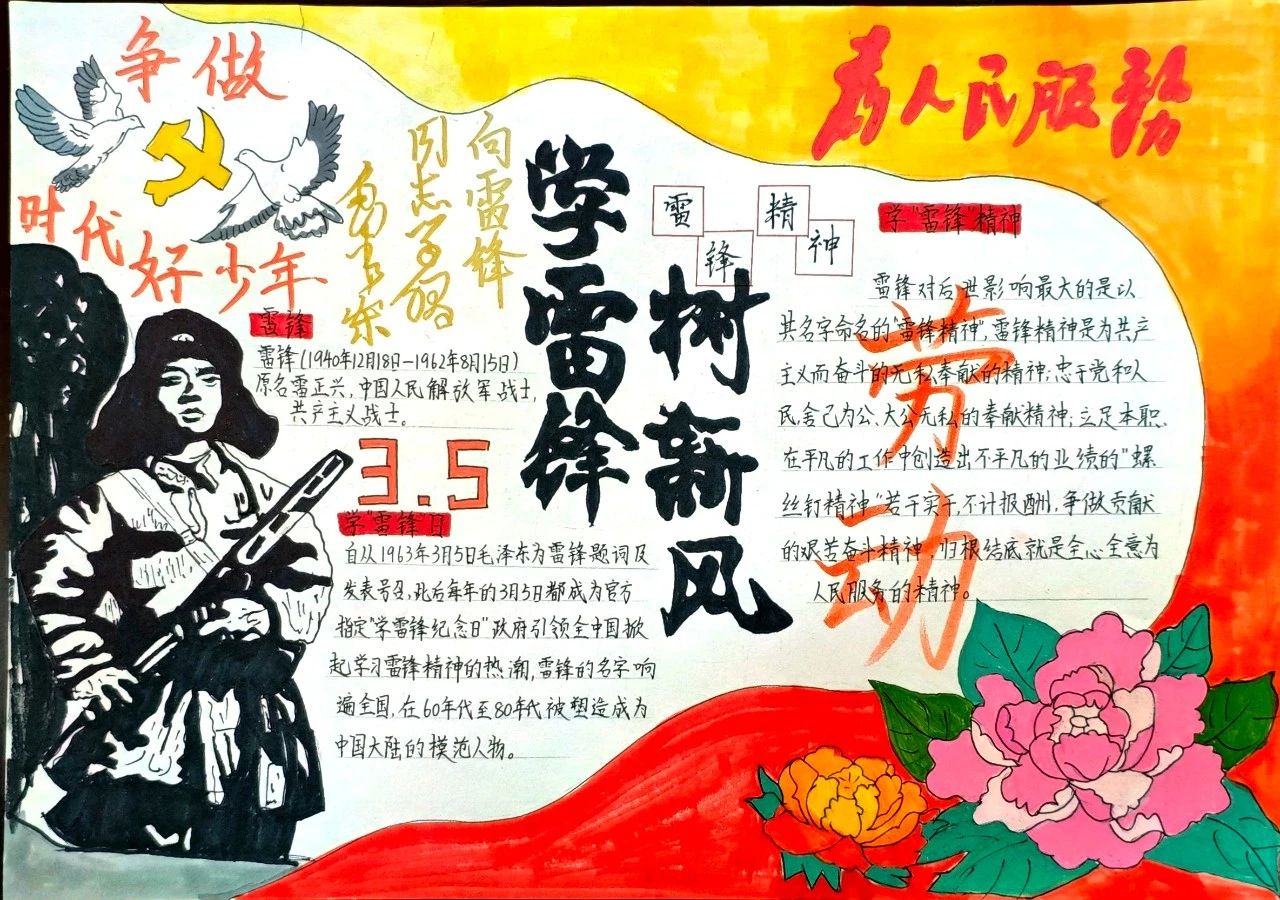 争做
时代
好少年
向雷锋
同志学习
毛泽东
学雷锋
树新风
为人民服务
雷锋
精神
雷锋
雷锋(1940年12月18日—1962年8月15日)
原名雷正兴,中国人民解放军战士,
共产主义战士。
3.5
学"雷锋"日
自从1963年3月5日毛泽东为雷锋题词及
发表号召,此后每年的3月5日都成为官方
指定"学雷锋纪念日"政府引领全中国掀
起学习雷锋精神的热潮,雷锋的名字响
遍全国,在60年代至80年代被塑造成为
中国大陆的模范人物。
学"雷锋"精神
雷锋对后世影响最大的是以
其名字命名的"雷锋精神",雷锋精神是为共产
主义而奋斗的无私奉献的精神;忠于党和人
民舍己为公、大公无私的奉献精神;立足本职、
在平凡的工作中创造出不平凡的业绩的"螺
丝钉精神"若干实干,不计报酬,争做贡献
的艰苦奋斗精神,归根结底就是全心全意为
人民服务的精神。
劳动